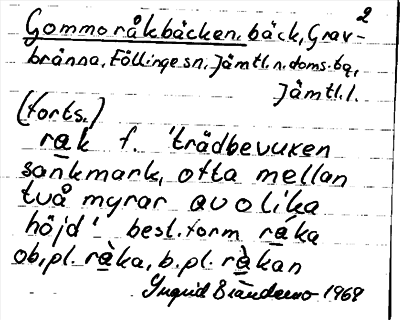 2
Gommoråkbäcken, bäck, Grav-
bränna, Föllinge sn, Jämtl. n. doms. tg,
Jämtl. l.
(forts.)
råk f. 'trädbevuxen
sankmark, ofta mellan
två myrar av olika
höjd' best. form råka
ob. pl. råka, b. pl. råkan
Ingrid 1969